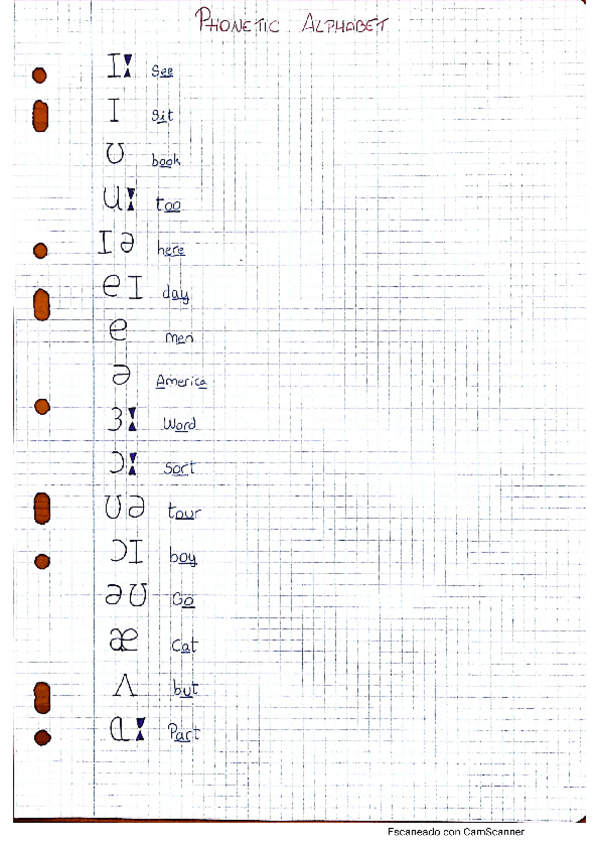 PHONETIC ALPHABET
Iː See
I sit
ʊ book
uː too
Iə here
eI day
e men
ə America
ɜː Word
ɔː sort
ʊə tour
ɔI boy
əʊ Go
æ cat
ʌ but
ɑː Part
Escaneado con CamScanner